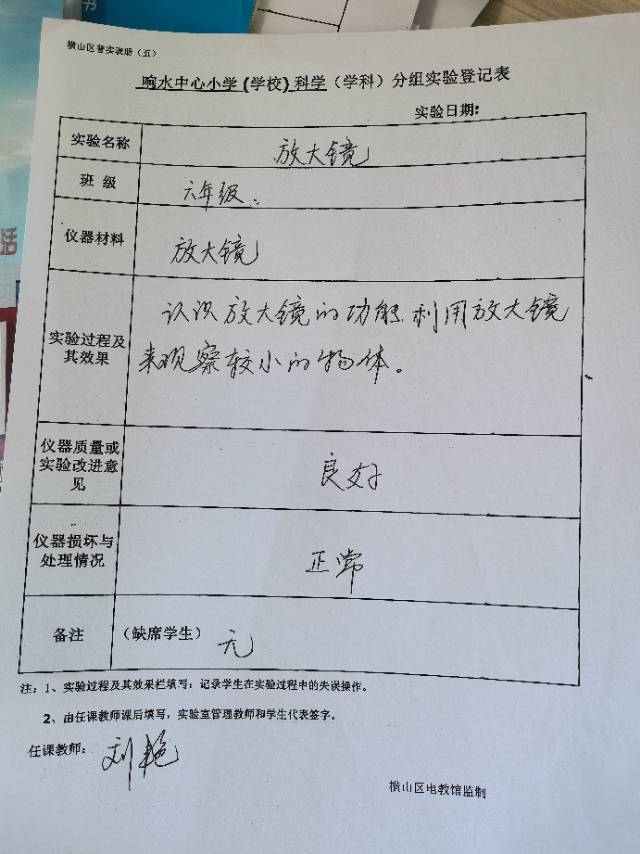 书
活
横山区普实表册（五）
响水中心小学 (学校) 科学（学科）分组实验登记表
实验日期:
实验名称 放大镜
班 级 六年级.
仪器材料 放大镜
认识放大镜的功能.利用放大镜
实验过程及
其效果
来观察较小的物体。
仪器质量或
实验改进意
见
良好
仪器损坏与
处理情况
正常
备注 （缺席学生） 无
注：1、实验过程及其效果栏填写：记录学生在实验过程中的失误操作。
2、由任课教师课后填写，实验室管理教师和学生代表签字。
任课教师： 刘艳
横山区电教馆监制